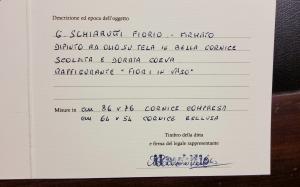 Descrizione ed epoca dell'oggetto
G. SCHIARUTTI FIORIO - FIRMATO
DIPINTO AD OLIO SU TELA IN BELLA CORNICE
SCOLPITA E DORATA COEVA
RAFFIGURANTE "FIORI IN VASO"
Misure in cm 86 x 76 CORNICE COMPRESA
cm 64 x 54 CORNICE ESCLUSA
Timbro della ditta
e firma del legale rappresentante